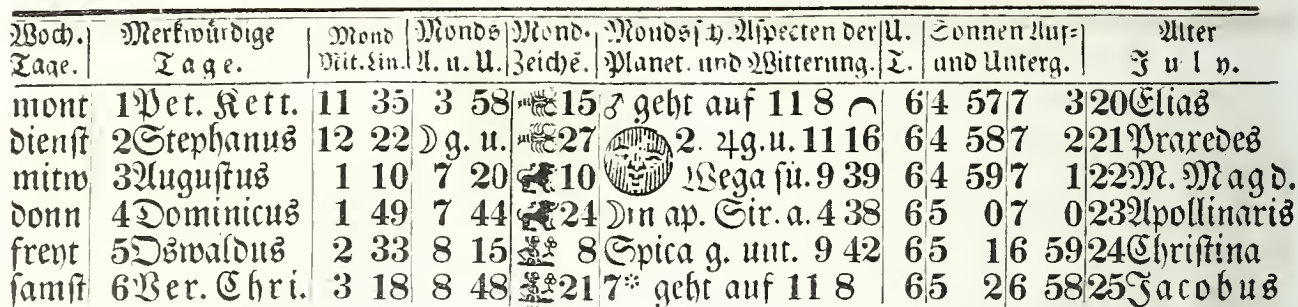 Woch. Merkwürdige Mond Monds Mond- Monds sch. Aspecten der U. Sonnen Auf= Alter
Tage. Tage. Mit. Lin. A. u. U. Zeichē. Planet. und Witterung. T. und Unterg. July.
mont 1 Pet. Kett. 11 35 3 58 15 ♂ geht auf 11 8 6 4 57 7 3 20 Elias
dienst 2 Stephanus 12 22 ☽ g. u. 27 2. ♃ g. u. 11 16 6 4 58 7 2 21 Praxedes
mitw 3 Augustus 1 10 7 20 10 Wega sü. 9 39 6 4 59 7 1 22 M. Magd.
donn 4 Dominicus 1 49 7 44 24 ☽ in ap. Sir. a. 4 38 6 5 0 7 0 23 Apollinaris
freyt 5 Oswaldus 2 33 8 15 8 Spica g. unt. 9 42 6 5 1 6 59 24 Christina
samst 6 Ver. Chri. 3 18 8 48 21 7* geht auf 11 8 6 5 2 6 58 25 Jacobus